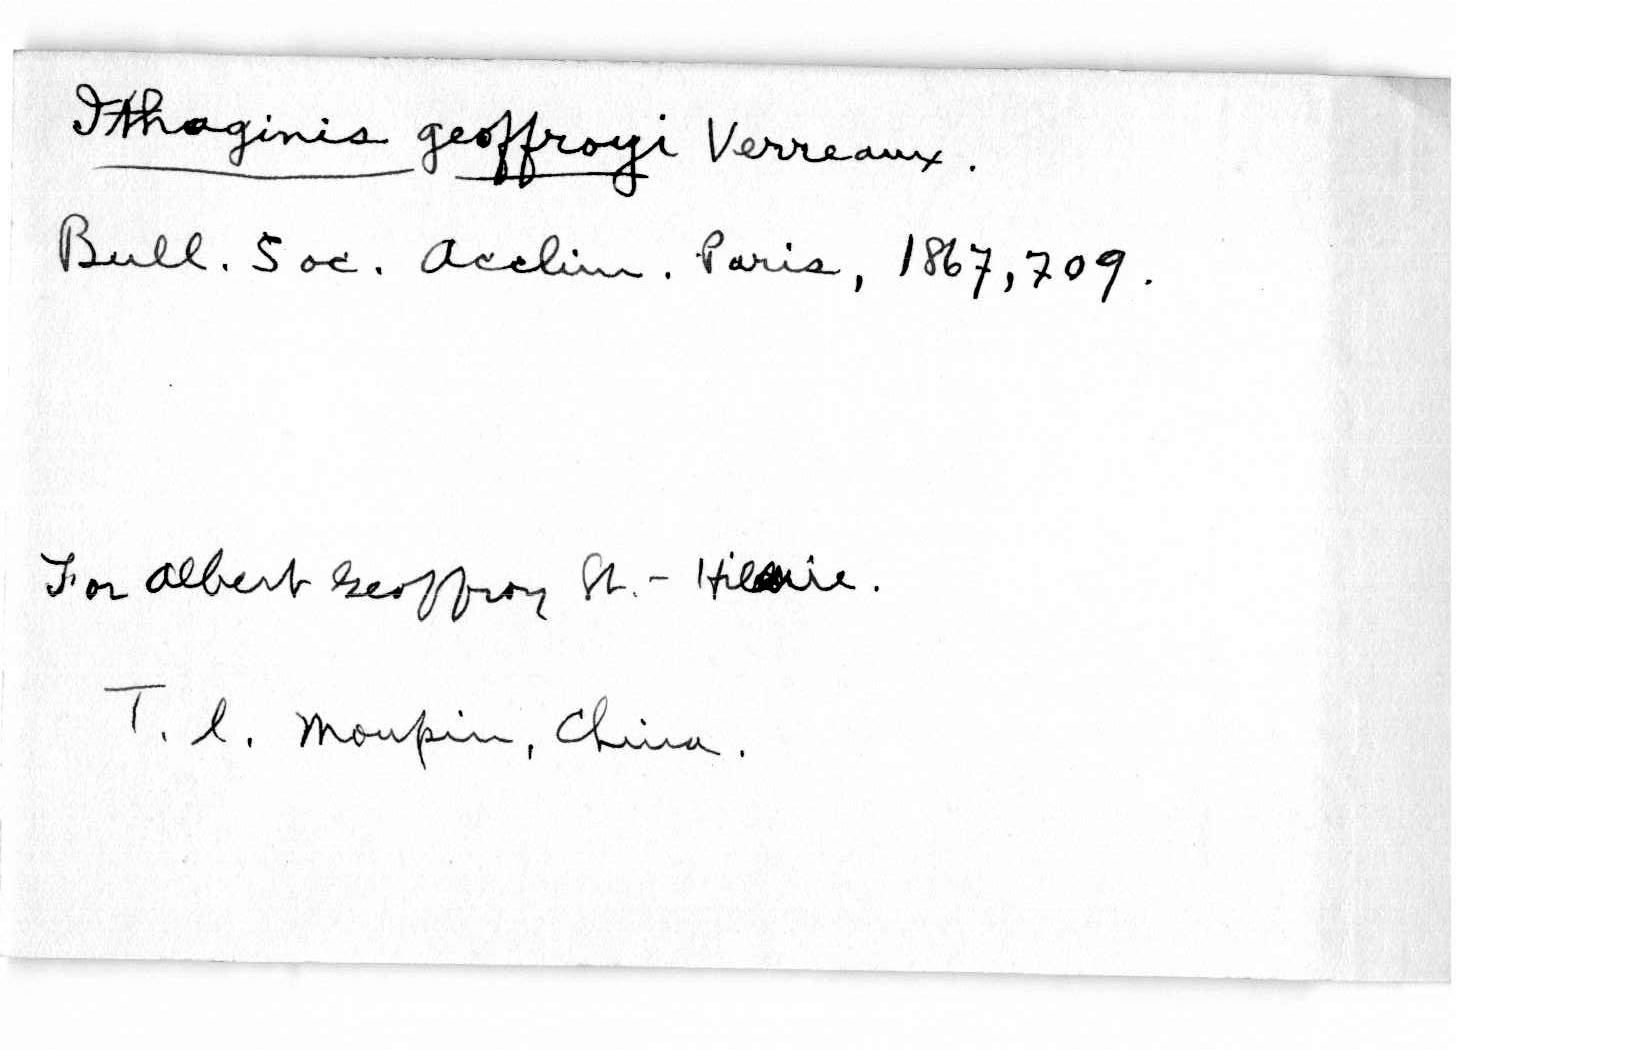 Ithaginis geoffroyi Verreaux.
Bull. Soc. Acclim. Paris, 1867, 709.
For Albert Geoffroy St.-Hilaire.
T. l. Moupin, China.